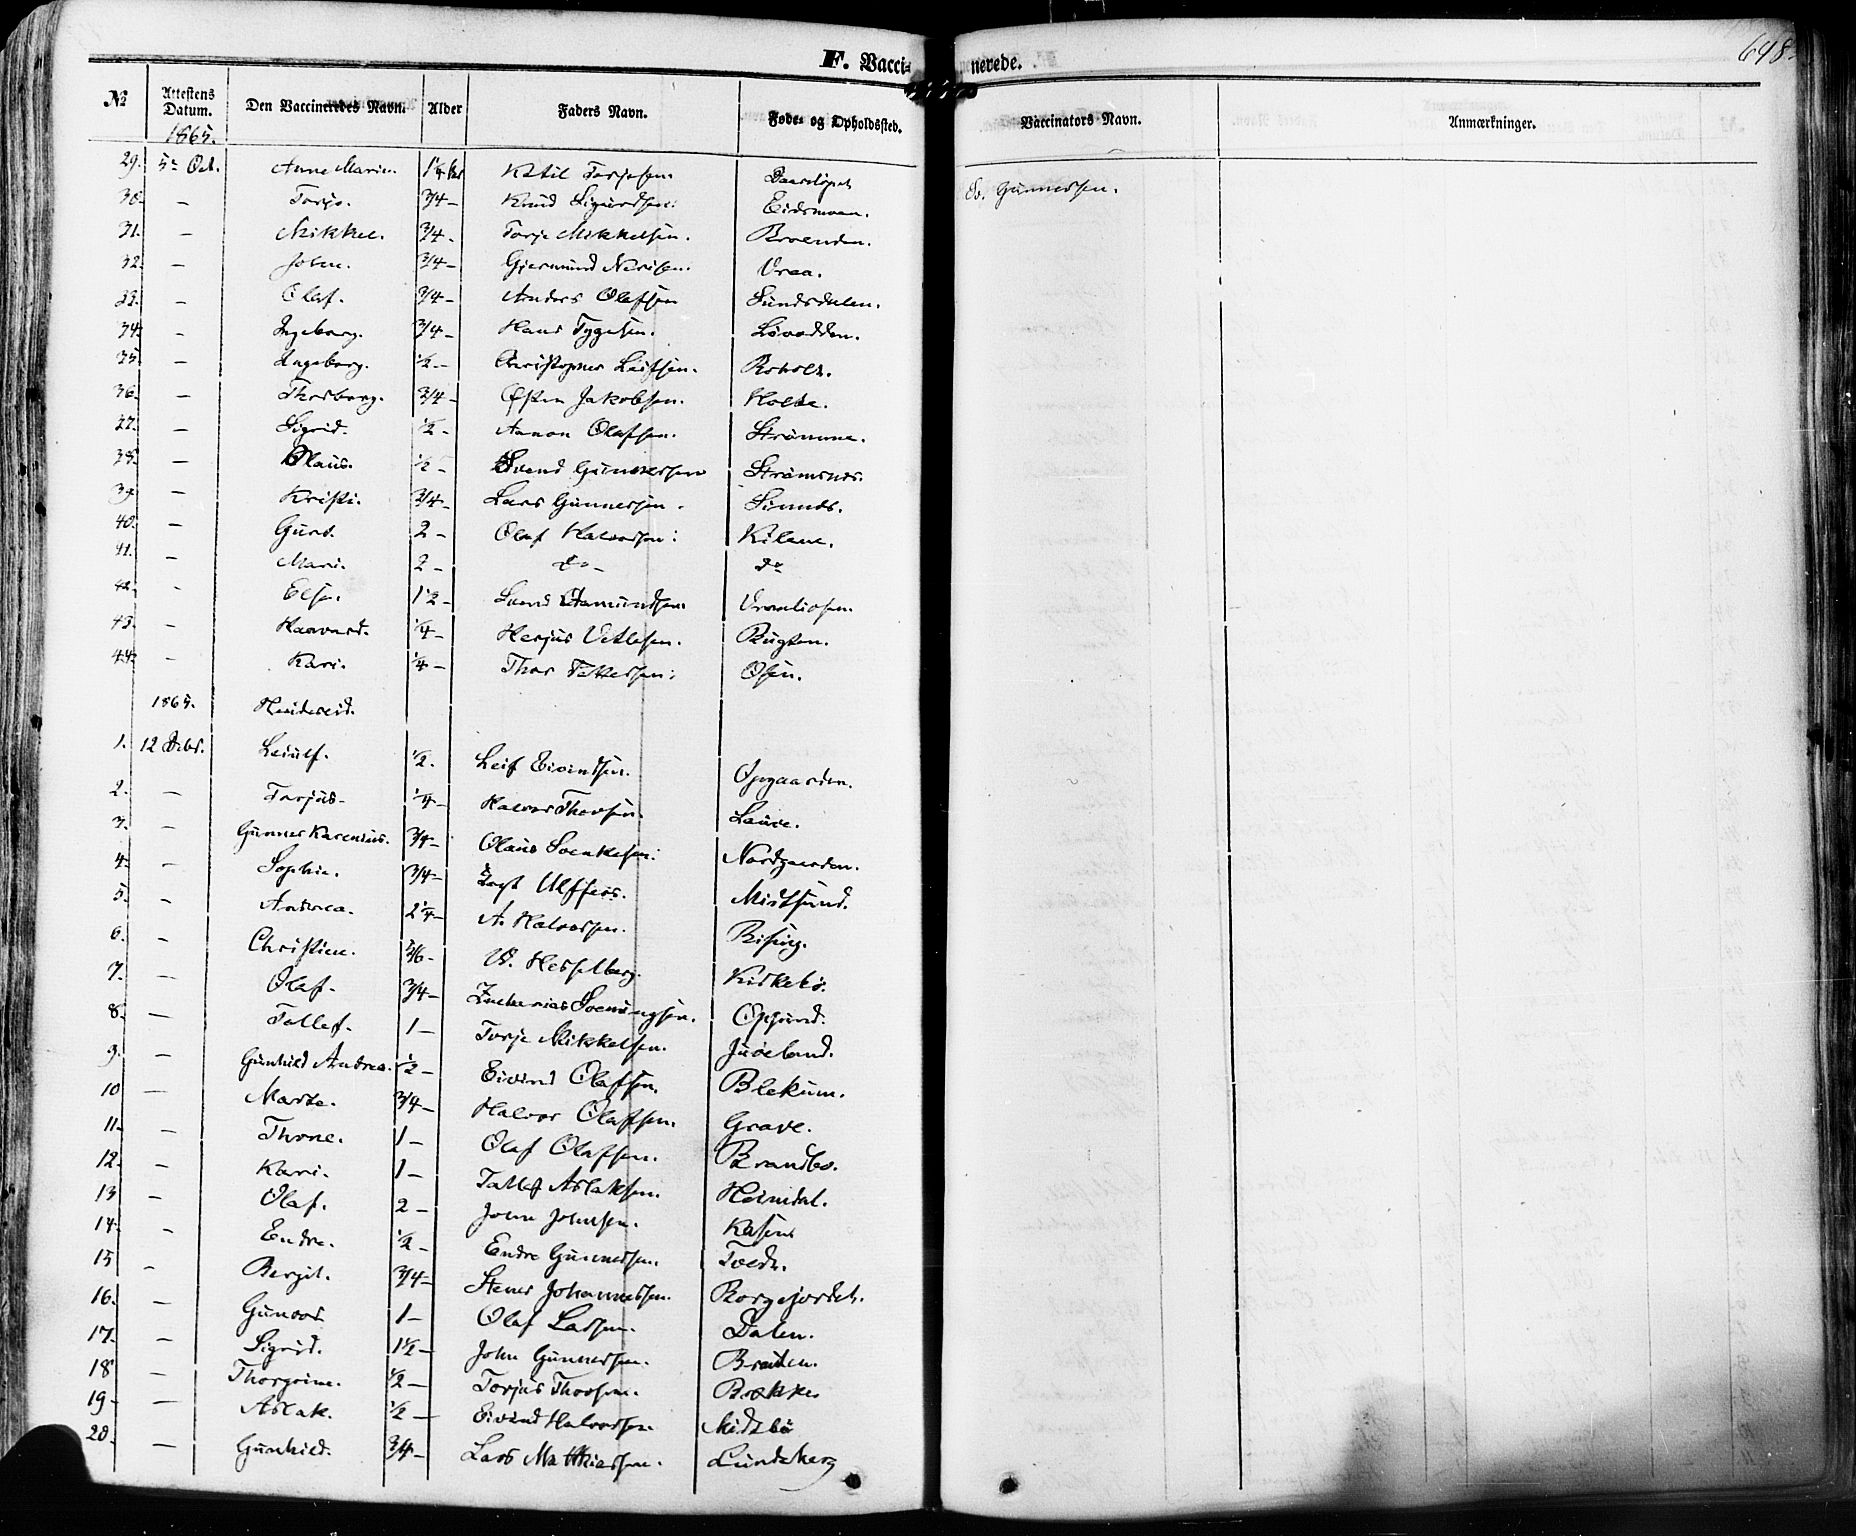 F. Vaccinerede.
648
№ Attestens Datum. Den Vaccineredes Navn. Alder Faders Navn. Føde- og Opholdssted. Vaccinators Navn. Anmærkninger.
1865.
29. 5te Oct. Anne Marie. 1 1/4 Ketil Torjesen. Ev. Gunnersen.
30. — Torjo. 3/4 — Knud Sigurdsen. Eidsmoen.
31. — Mikkel. 3/4 — Torje Mikkelsen. Broenden.
32. — John. 3/4 — Gjermund Nerisen. Vraa.
33. — Olaf. 3/4 — Anders Olafsen Sundsdalen.
34. — Ingeborg. 3/4 — Hans Tygesen. Løvodden.
35. — Ingeborg. 1/2 — Christopher Leifsen. Roholt.
36. — Thorborg. 3/4 — Østen Jakobsen. Holte.
37. — Sigrid. 1/2 — Aanon Olafsen. Strømme.
38. — Olaus. 1/2 — Svend Gunnersen Strømsnes.
39. — Kristi. 3/4 — Lars Gunnersen. Sinnes.
40. — Guro. 2 — Olaf Halvorsen. Kilane.
41. — Mari. 2 — do — do
42. — Else. 1 1/2 — Svend Aamundsen Vraaliosen.
43. — Haavard. 1/4 — Herjus Vetlesen. Bugten.
44. — Kari. 1/4 — Thor Tellefsen. Osen.
1865. Heidereid.
1. 12 Debr. Leiulf. 1/2. Leif Eivindsen. Opgaarden.
2. — Torjus. 1/4 — Halvor Thorsen. Lauve.
3. — Gunner Karenius. 3/4 — Olaus Svenkesen. Nordgaarden.
4. — Sophie. 3/4 — Logt Ulfsers. Midtsund.
5. — Andrea. 2 1/4 — A. Halvorsen. Rising.
6. — Christine. 5/6 — W. Hesselberg. Kirkebø.
7. — Olaf. 3/4 — Zacharias Svenungsen. Opsund.
8. — Tellef. 1 — Torje Mikkelsen. Juseland.
9. — Gunhild Andrea. 1/2 — Eivind Olafsen. Blekum.
10 — Marte. 3/4 — Halvor Olafsen. Grave.
11. — Thone. 1 — Olaf Olafsen. Brandbo.
12. — Kari. 1 — Tallef Aslaksen. Heimdal.
13 — Olaf. 2 — John Johnsen. Kasin
14. — Endre. 1/2 — Endre Gunnersen. Tvedt.
15 — Bergit. 3/4 — Stener Johannessen. Borgejordet.
16. — Gunvor 1 — Olaf Larsen. Dalen.
17. — Sigrid. 1 1/2 — John Gunnersen. Braaten.
18 — Thorgrine. 1/2 — Torjus Thorsen. Bækka
19 — Aslak. 1/2 — Eivind Halvorsen. Midtbø
20. — Gunhild. 3/4 — Lars Mathiassen. Lundsberg